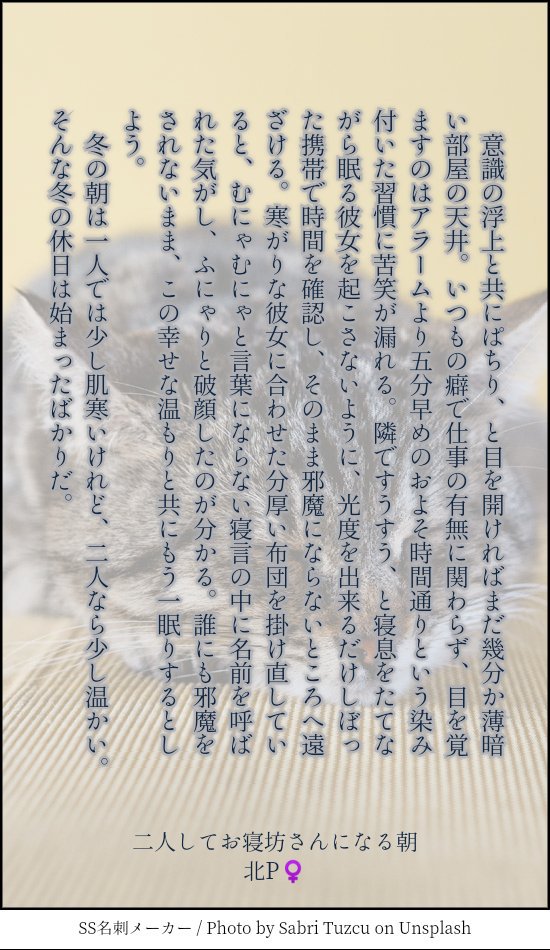 意識の浮上と共にぱちり、と目を開ければまだ幾分か薄暗
い部屋の天井。いつもの癖で仕事の有無に関わらず、目を覚
ますのはアラームより五分早めのおよそ時間通りという染み
付いた習慣に苦笑が漏れる。隣ですうすう、と寝息をたてな
がら眠る彼女を起こさないように、光度を出来るだけしぼっ
た携帯で時間を確認し、そのまま邪魔にならないところへ遠
ざける。寒がりな彼女に合わせた分厚い布団を掛け直してい
ると、むにゃむにゃと言葉にならない寝言の中に名前を呼ば
れた気がし、ふにゃりと破顔したのが分かる。誰にも邪魔を
されないまま、この幸せな温もりと共にもう一眠りするとし
よう。
冬の朝は一人では少し肌寒いけれど、二人なら少し温かい。
そんな冬の休日は始まったばかりだ。
二人してお寝坊さんになる朝
北P♀
SS名刺メーカー / Photo by Sabri Tuzcu on Unsplash